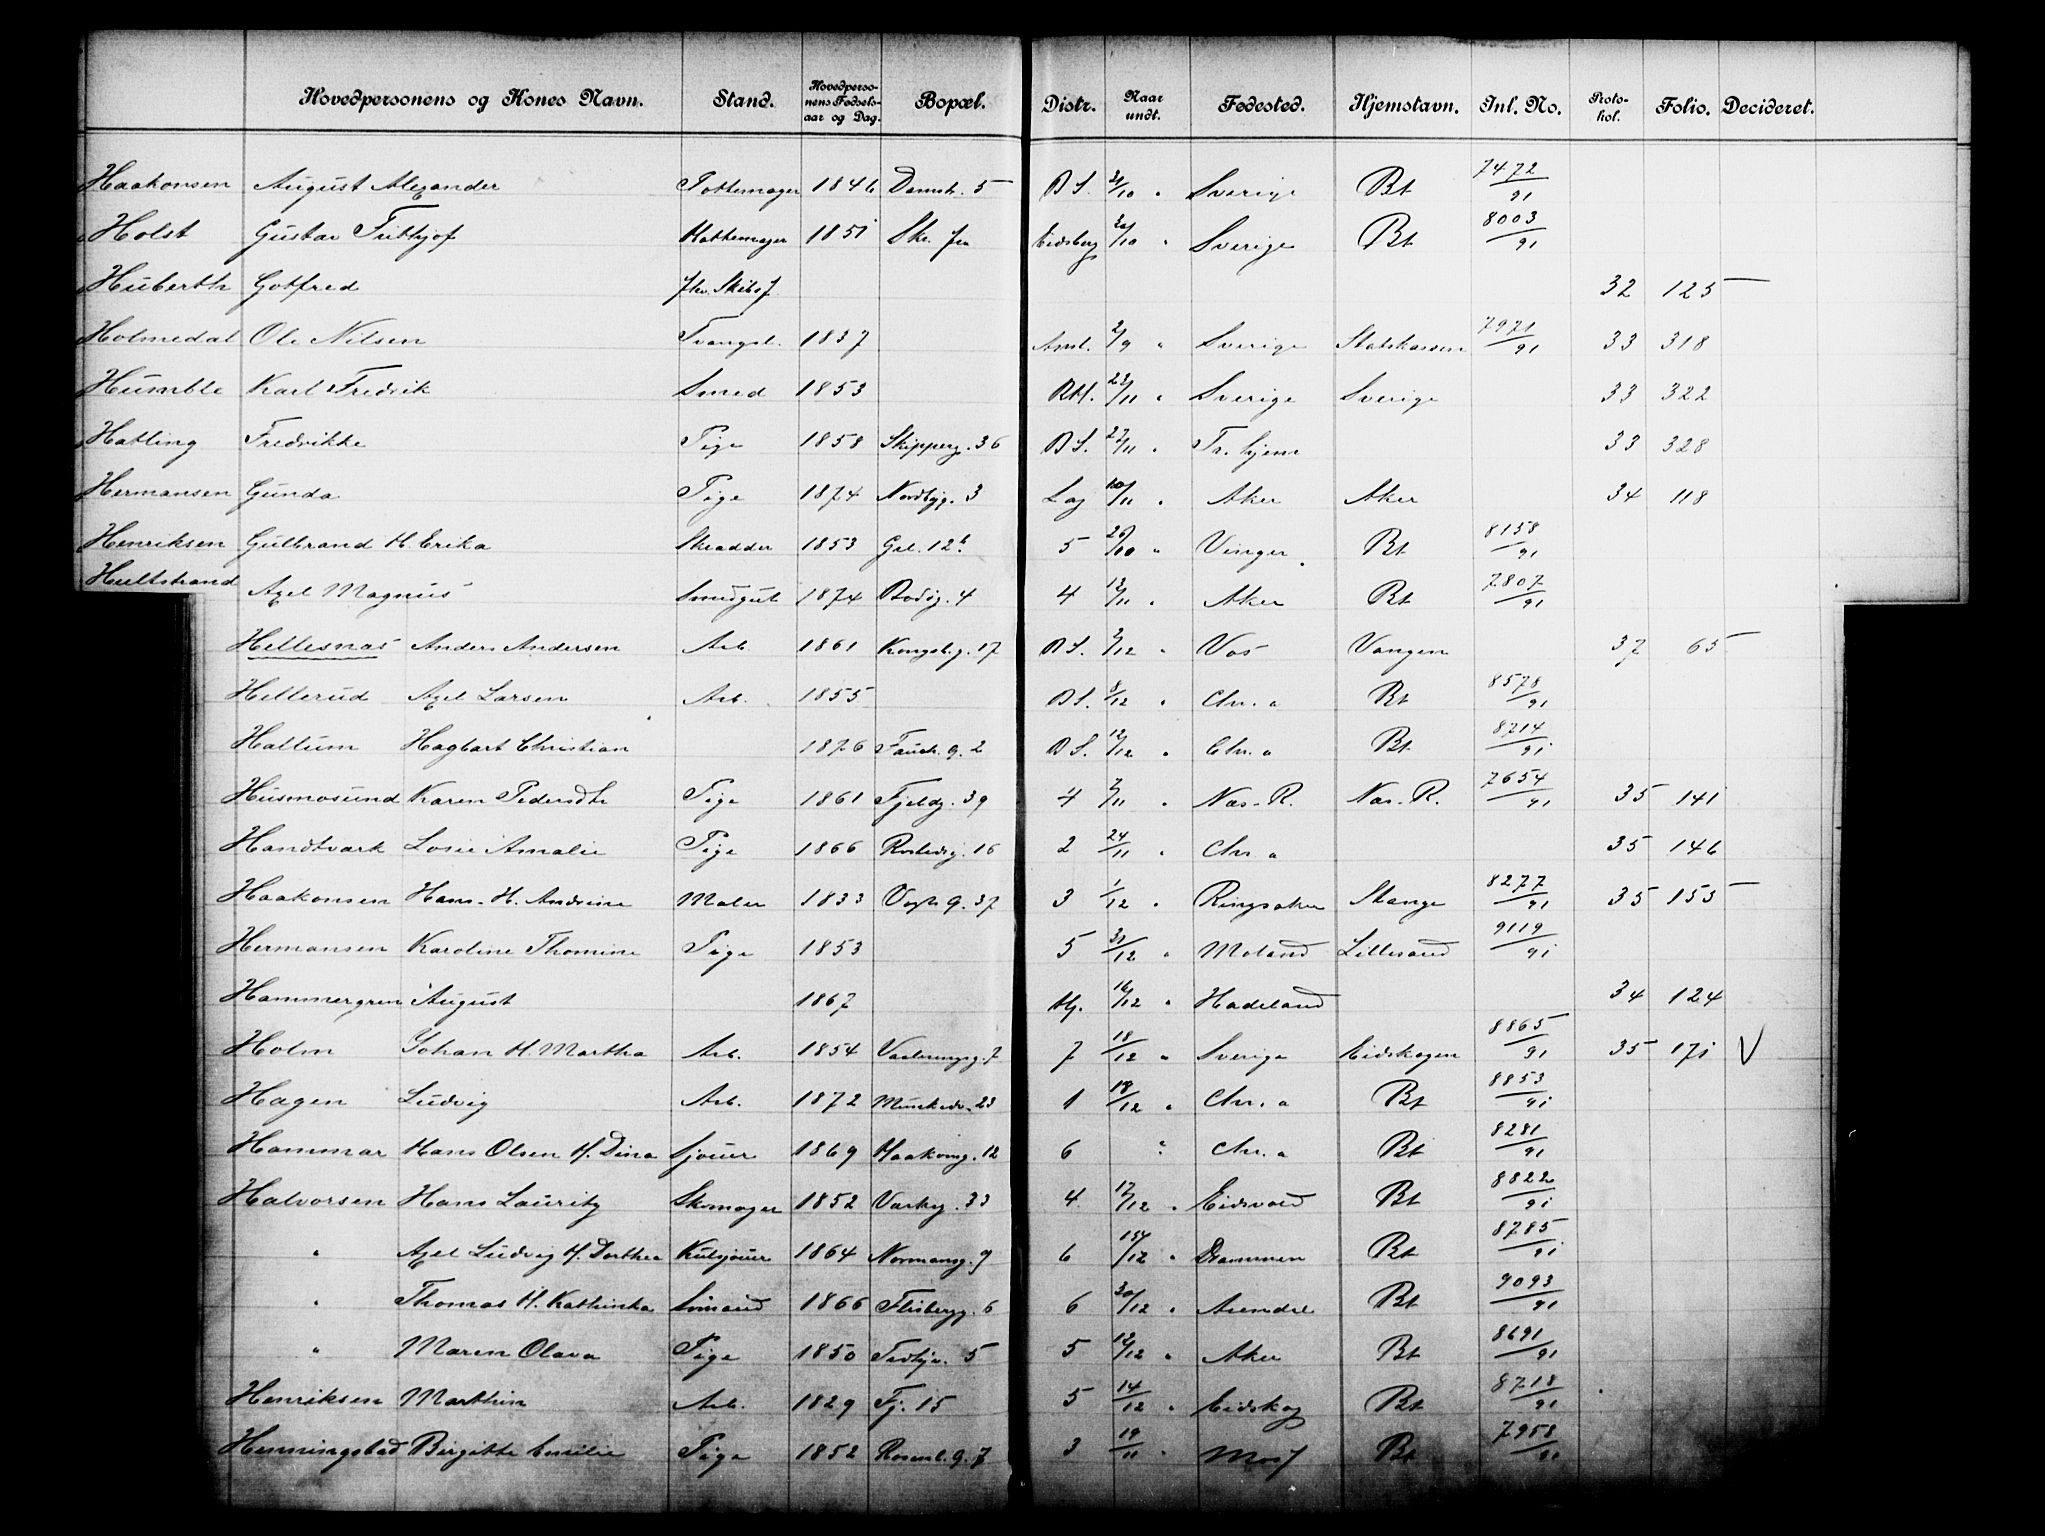 Hovedpersonens og Kones Navn. Stand. Hovedpersonens Fødselsaar og Dag. Bopæl. Distr. Naar undt. Fødested. Hjemstavn. Inl. No. Protokol. Folio. Decideret.
Haakonsen August Alexander Pottemager 1846 Damstr. 5 B S. /10 " Sverige Bt 7472/91
Holst Gustav Frithjof 1851 Eidsberg /10 " Sverige Bt 8003/91
Huberth Gotfred 32 125 —
Holmedal Ole Nilsen Tvangsl. 1837 2/9 " Sverige Statskassen 7971/91 33 318
Humble Karl Fredrik Smed 1853 22/11 " Sverige Sverige 33 322
Hatling Fredrikke Pige 1858 Skipperg. 36 B S. 27/11 " Tr.hjem 33 328
Hermansen Gunda Pige 1874 Nordbyg. 3 /11 " Aker Aker 34 118
Henriksen Gulbrand H. Erika Skrædder 1853 5 20/10 " Vinger Bt 8158/91
Hultstrand Axel Magnus Smedgut 1874 4 /11 " Aker Bt 7807/91
Hellesnæs Anders Andersen Arb 1861 Kongsb.g. 17 B S. 2/12 " Vos Vangen 37 65 —
Hellerud Axel Larsen Arb. 1855 B S. 8/12 " Chr. a Bt 8578/91
Hallum Hagbart Christian 1876 Fauch. g. 2 B S. 12/12 " Chr. a Bt 8714/91
Husmosund Karen Pedersdtr Pige 1861 Fjeldg. 39 4 /11 " Næs-R. Næs-R. 7654/91 35 141
Handtvark Amalie Pige 1866 16 2 24/11 " Chr. a 35 146
Haakonsen Hans. H. Andrine Maler 1833 Vogts g. 37 3 1/12 " Ringsaker Stange 8277/91 35 153 —
Hermansen Karoline Thomine Pige 1853 5 31/12 " Moland Lillesand 9119/91
Hammergren August 1867 16/12 " Hadeland 34 124
Holm Johan H. Martha Arb. 1854 7 7 18/12 " Sverige Eidskogen 8865/91 35 171 V
Hagen Ludvig Arb. 1872 23 1 /12 " Chr. a Bt 8853/91
Hammar Hans Olsen H. Dina Sjouer 1869 Haakong. 12 6 " Chr. a Bt 8281/91
Halvorsen Hans Lauritz Skomager 1852 33 4 17/12 " Eidsvold Bt 8822/91
" Axel Ludvig H. Dorthea Kulsjouer 1864 Normansg. 9 6 /12 " Drammen Bt 8785/91
" Thomas H. Kathinka Sømand 1866 Flisbergg. 6 6 30/12 " Arendal Bt 9093/91
" Maren Olava Pige 1850 5 5 12/12 " Aker Bt 8691/91
Henriksen Marthin Arb. 1829 Fj. 15 5 14/12 " Eidskog Bt 8718/91
Henningstad Birgitte Emilie Pige 1852 Rosenl.g. 7 3 19/11 " Moss Bt 7958/91